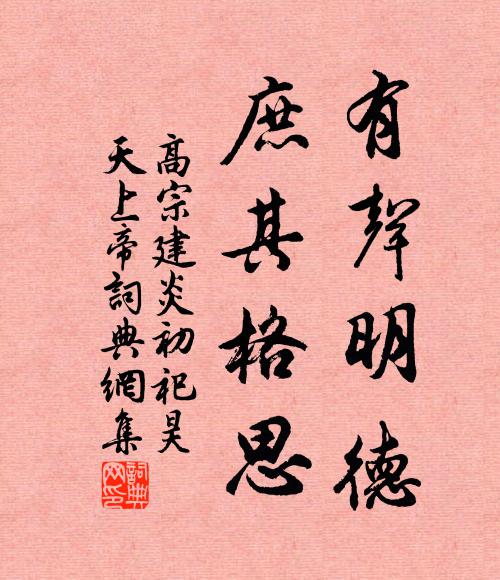 有聲明德
庶其格思
高宗建炎初祀昊
天上帝詞典網集
詞典
網印